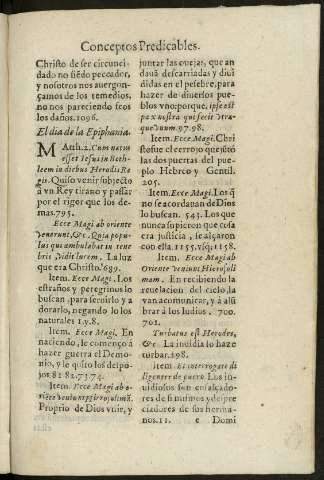 Conceptos Predicables.
Christo de ser circunci-
dado no siẽdo peccador,
y nosotros nos auergon-
çamos de los remedios,
no nos pareciendo feos
los daños. 1096.
El dia de la Epiphania.
MAtth. 2. Cum natus
esset Iesus in Beth-
leem in diebus Herodis Re
gis. Quiso venir subjecto
a vn Rey tirano y passar
por el rigor que los de-
mas. 795.
Ecce Magi ab oriente
venerunt, &c. Quia popu-
lus qui ambulabat in tene
bris vidit lucem. La luz
que era Christo. 639.
Item. Ecce Magi. Los
estraños y peregrinos lo
buscan, para seruirlo y a
dorarlo, negando lo los
naturales 1. y. 8.
Item. Ecce Magi. En
naciendo, le começo à
hazer guerra el Demo-
nio, y le quito los despo-
jos. 81. 82. 73. 74.
Item. Ecce Magi ab o-
riẽte venerunt Hierosolimã.
Proprio de Dios vnir, y
juntar las ouejas, que an
dauã descarriadas y diui
didas en el pesebre, para
hazer de diuersos pue-
blos vno: porque, ipse est
pax nostra qui fecit vtra-
que vnum. 97. 98.
Item. Ecce Magi. Chri
sto fue el cerrojo que jstò
las dos puertas del pue-
plo Hebreo y Gentil.
205.
Item. Ecce Magi. Los q̃
no se acordauan de Dios
lo buscan. 543. Los que
nunca supieron que cosa
era justicia, se alçaron
con ella. 1155. vsq; 1158.
Item. Ecce Magi ab
Oriente veniunt Hierosoli
mam. En recibiendo la
reuelacion del cielo, la
van acomunicar, y à àl
brar à los Iudios. 700.
701.
Turbatus est Herodes,
&c. La inuidia lo haze
turbar. 198.
Item. Et interrogate di
ligenter de puero. Los in-
uidiosos son ensalçado-
res de si mismos y despre
ciadores de sus herma-
nos. 11. e Domi